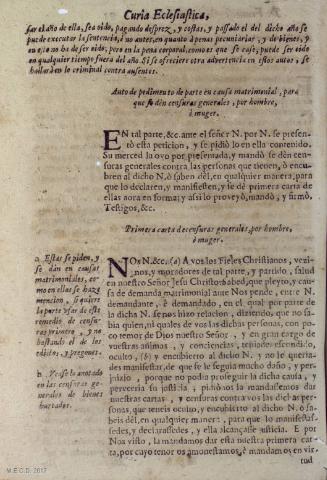 Curia Eclesiastica,
sar el año de ella, sea oido, pagando desprez, y costas, y passado el del dicho año se
puede executar la sentencia, ò no antes, en quanto à penas pecuniarias, y de bienes, y
en ella no ha de ser oido, pero en la pena corporal, como es que se case, puede ser oido
en qualquier tiempo fuera del año. Si se ofreciere otra advertencia en estos autos, se
hallarà en lo criminal contra ausentes.
Auto de pedimento de parte en causa matrimonial, para
que se dèn censuras generales, por hombre,
ò muger.
EN tal parte, &c. ante el señor N. por N. se presen-
tò esta peticion, y se pidiò lo en ella contenido.
Su merced la ovo por presentada, y mandò se dèn cen-
suras generales contra las personas que tienen, ò encu-
bren al dicho N. ò saben dèl, en qualquier manera; para
que lo declaren, y manifiesten, y se dè primera carta de
ellas aora en forma; y assi lo proveyò, mandò, y firmò.
Testigos, &c.
Primera carta de censuras generales, por hombre,
ò muger.
a Estas se piden, y
se dàn en causas
matrimoniales, co-
mo en ellas se haze
mencion, si quiere
la parte usar de este
remedio de censu-
ras primero, y no
bastando el de los
edictos, y pregones.
b Vease lo anotado
en las censuras ge-
nerales de bienes
hurtados.
NOS N. &c. (a) A vos los Fieles Christianos, vezi-
nos, y moradores de tal parte, y partido, salud
en nuestro Señor Jesu Christo: Sabed, que pleyto, y cau-
sa de demanda matrimonial ante Nos pende, entre N.
demandante, è demandado, en el qual por parte de
la dicha N. se nos hizo relacion, diziendo, que no sa-
bia quien, ni quales de vos las dichas personas, con po-
co temor de Dios nuestro Señor, y en gran cargo de
vuestras animas, y conciencias, teniades escondido,
oculto, (b) y encubierto al dicho N. y no le queria-
des manifestar, de que se le seguia mucho daño, y per-
juizio, porque no podia proseguir la dicha causa, y
pereceria su justicia, pidiònos la mandassemos dar
nuestras cartas, y censuras contra vos las dichas per-
sonas, que teneis oculto, y encubierto al dicho N. ò sa-
beis dèl, en qualquier manera, para que lo manifestas-
sedes, y declarassedes, y ella alcançasse justicia. E por
Nos visto, la mandamos dar esta nuestra primera car-
ta, por cuyo tenor os amonestamos, è mandamos en vir-
tud
M.E.C.D. 2017